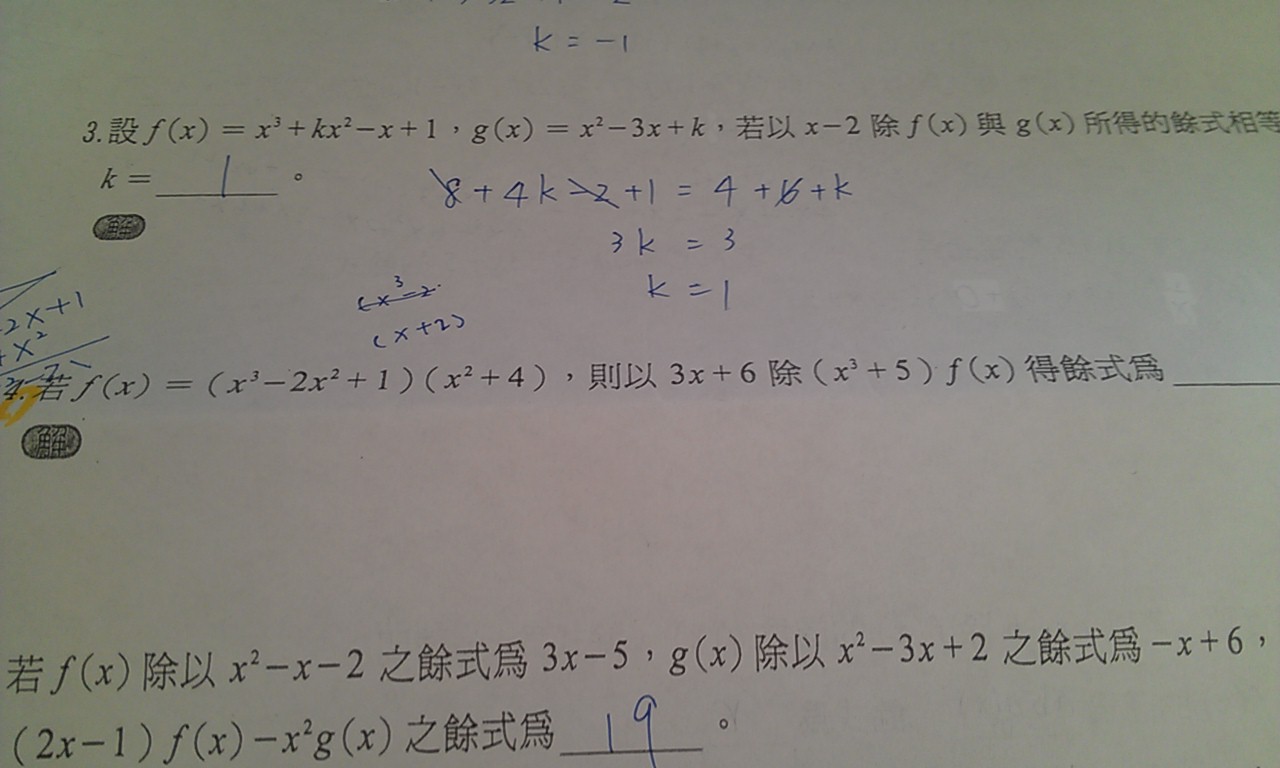 k = -1
3. 設 f(x) = x³+kx²−x+1，g(x) = x²−3x+k，若以 x−2 除 f(x) 與 g(x) 所得的餘式相等
k = 1 。
8+4k-2+1 = 4+6+k
解
3k = 3
k = 1
(x³-2
(x+2)
-2x+1
+x²
4. 若 f(x) = (x³−2x²+1)(x²+4)，則以 3x+6 除 (x³+5) f(x) 得餘式爲
解
若 f(x) 除以 x²−x−2 之餘式爲 3x−5，g(x) 除以 x²−3x+2 之餘式爲 −x+6，
(2x−1) f(x)−x²g(x) 之餘式爲 19 。